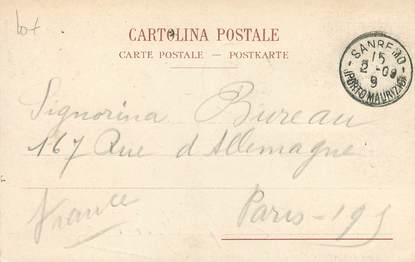 lot
CARTOLINA POSTALE
CARTE POSTALE — POSTKARTE
SANREMO
15
2-09
9
(PORTO MAURIZIO)
Signorina Bureau
167 Rue d'Allemagne
Paris - 19e
France